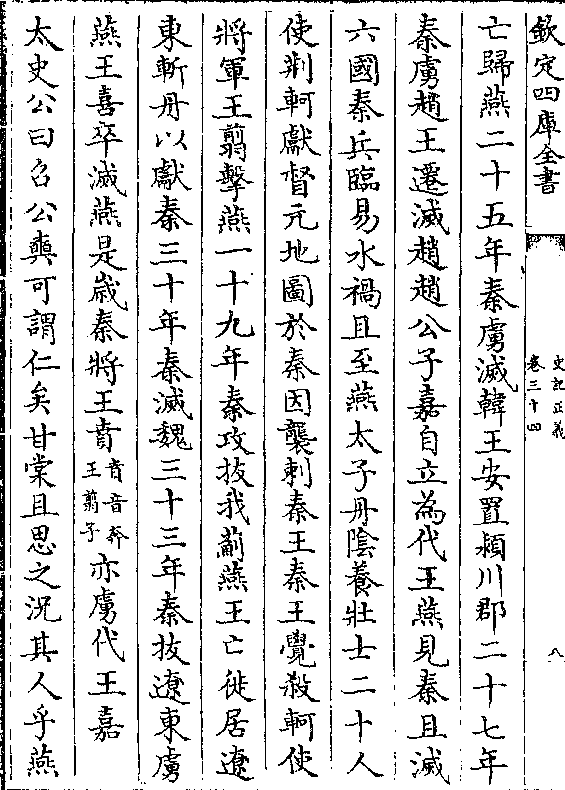 欽定四庫全書
史記正義
卷三十四
八
亡歸燕二十五年秦虜滅韓王安置潁川郡二十七年
秦虜趙王遷滅趙趙公子嘉自立為代王燕見秦且滅
六國秦兵臨易水禍且至燕太子丹陰養壯士二十人
使荆軻獻督亢地圖於秦因襲刺秦王秦王覺殺軻使
將軍王翦擊燕一十九年秦攻拔我薊燕王亡徙居遼
東斬丹以獻秦三十年秦滅魏三十三年秦拔遼東虜
燕王喜卒滅燕是歲秦將王賁賁音奔王翦子亦虜代王嘉
太史公曰召公奭可謂仁矣甘棠且思之況其人乎燕